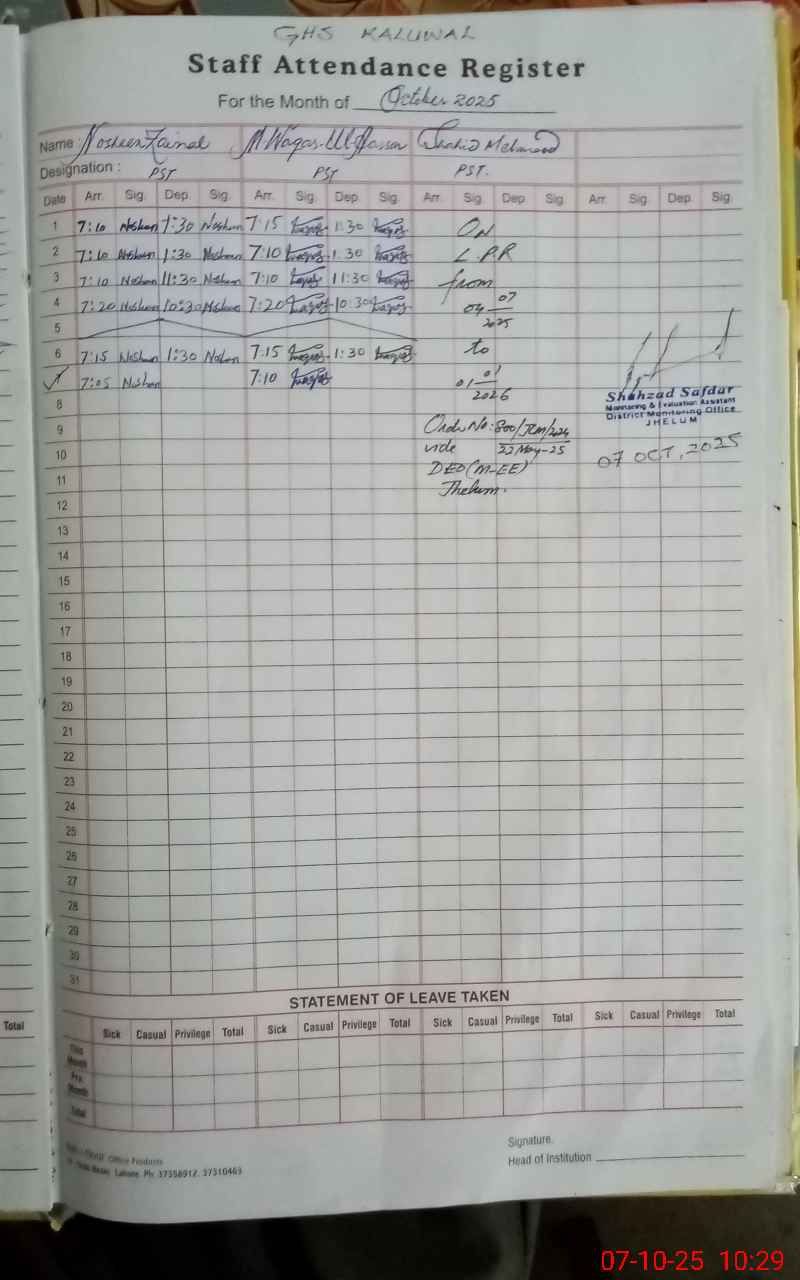 GHS KALUWAL
Staff Attendance Register
For the Month of October 2025
Name: Nosheen Zainab M Waqas-Ul-Hassan Shahid Mehmood
Designation: PST PST PST.
Date Arr. Sig. Dep. Sig. Arr. Sig. Dep. Sig. Arr. Sig. Dep. Sig. Arr. Sig. Dep. Sig.
1 7:10 Noshen 1:30 Noshen 7:15 Waqas 1:30 Waqas ON
2 7:10 Noshen 1:30 Noshen 7:10 Waqas 1:30 Waqas L.P.R
3 7:10 Noshen 11:30 Noshen 7:10 Waqas 11:30 Waqas from
4 7:20 Noshen 10:30 Noshen 7:20 Waqas 10:30 Waqas 04 07
5 2025
6 7:15 Noshen 1:30 Noshen 7:15 Waqas 1:30 Waqas to
7:05 Noshen 7:10 Waqas 01 01
8 2026
Shahzad Safdar
Monitoring & Evaluation Assistant
District Monitoring Office
JHELUM
9 Order No: 800/JLM/2024
10 vide 22 May-25 07 OCT, 2025
11 DEO (M-EE)
Jhelum.
12
13
14
15
16
17
18
19
20
21
22
23
24
25
26
27
28
29
30
31
STATEMENT OF LEAVE TAKEN
Total Sick Casual Privilege Total Sick Casual Privilege Total Sick Casual Privilege Total Sick Casual Privilege Total
This Month
Pre. Month
Total
Signature.
Head of Institution
Office Products
Lahore. Ph: 37358912, 37310463
07-10-25 10:29